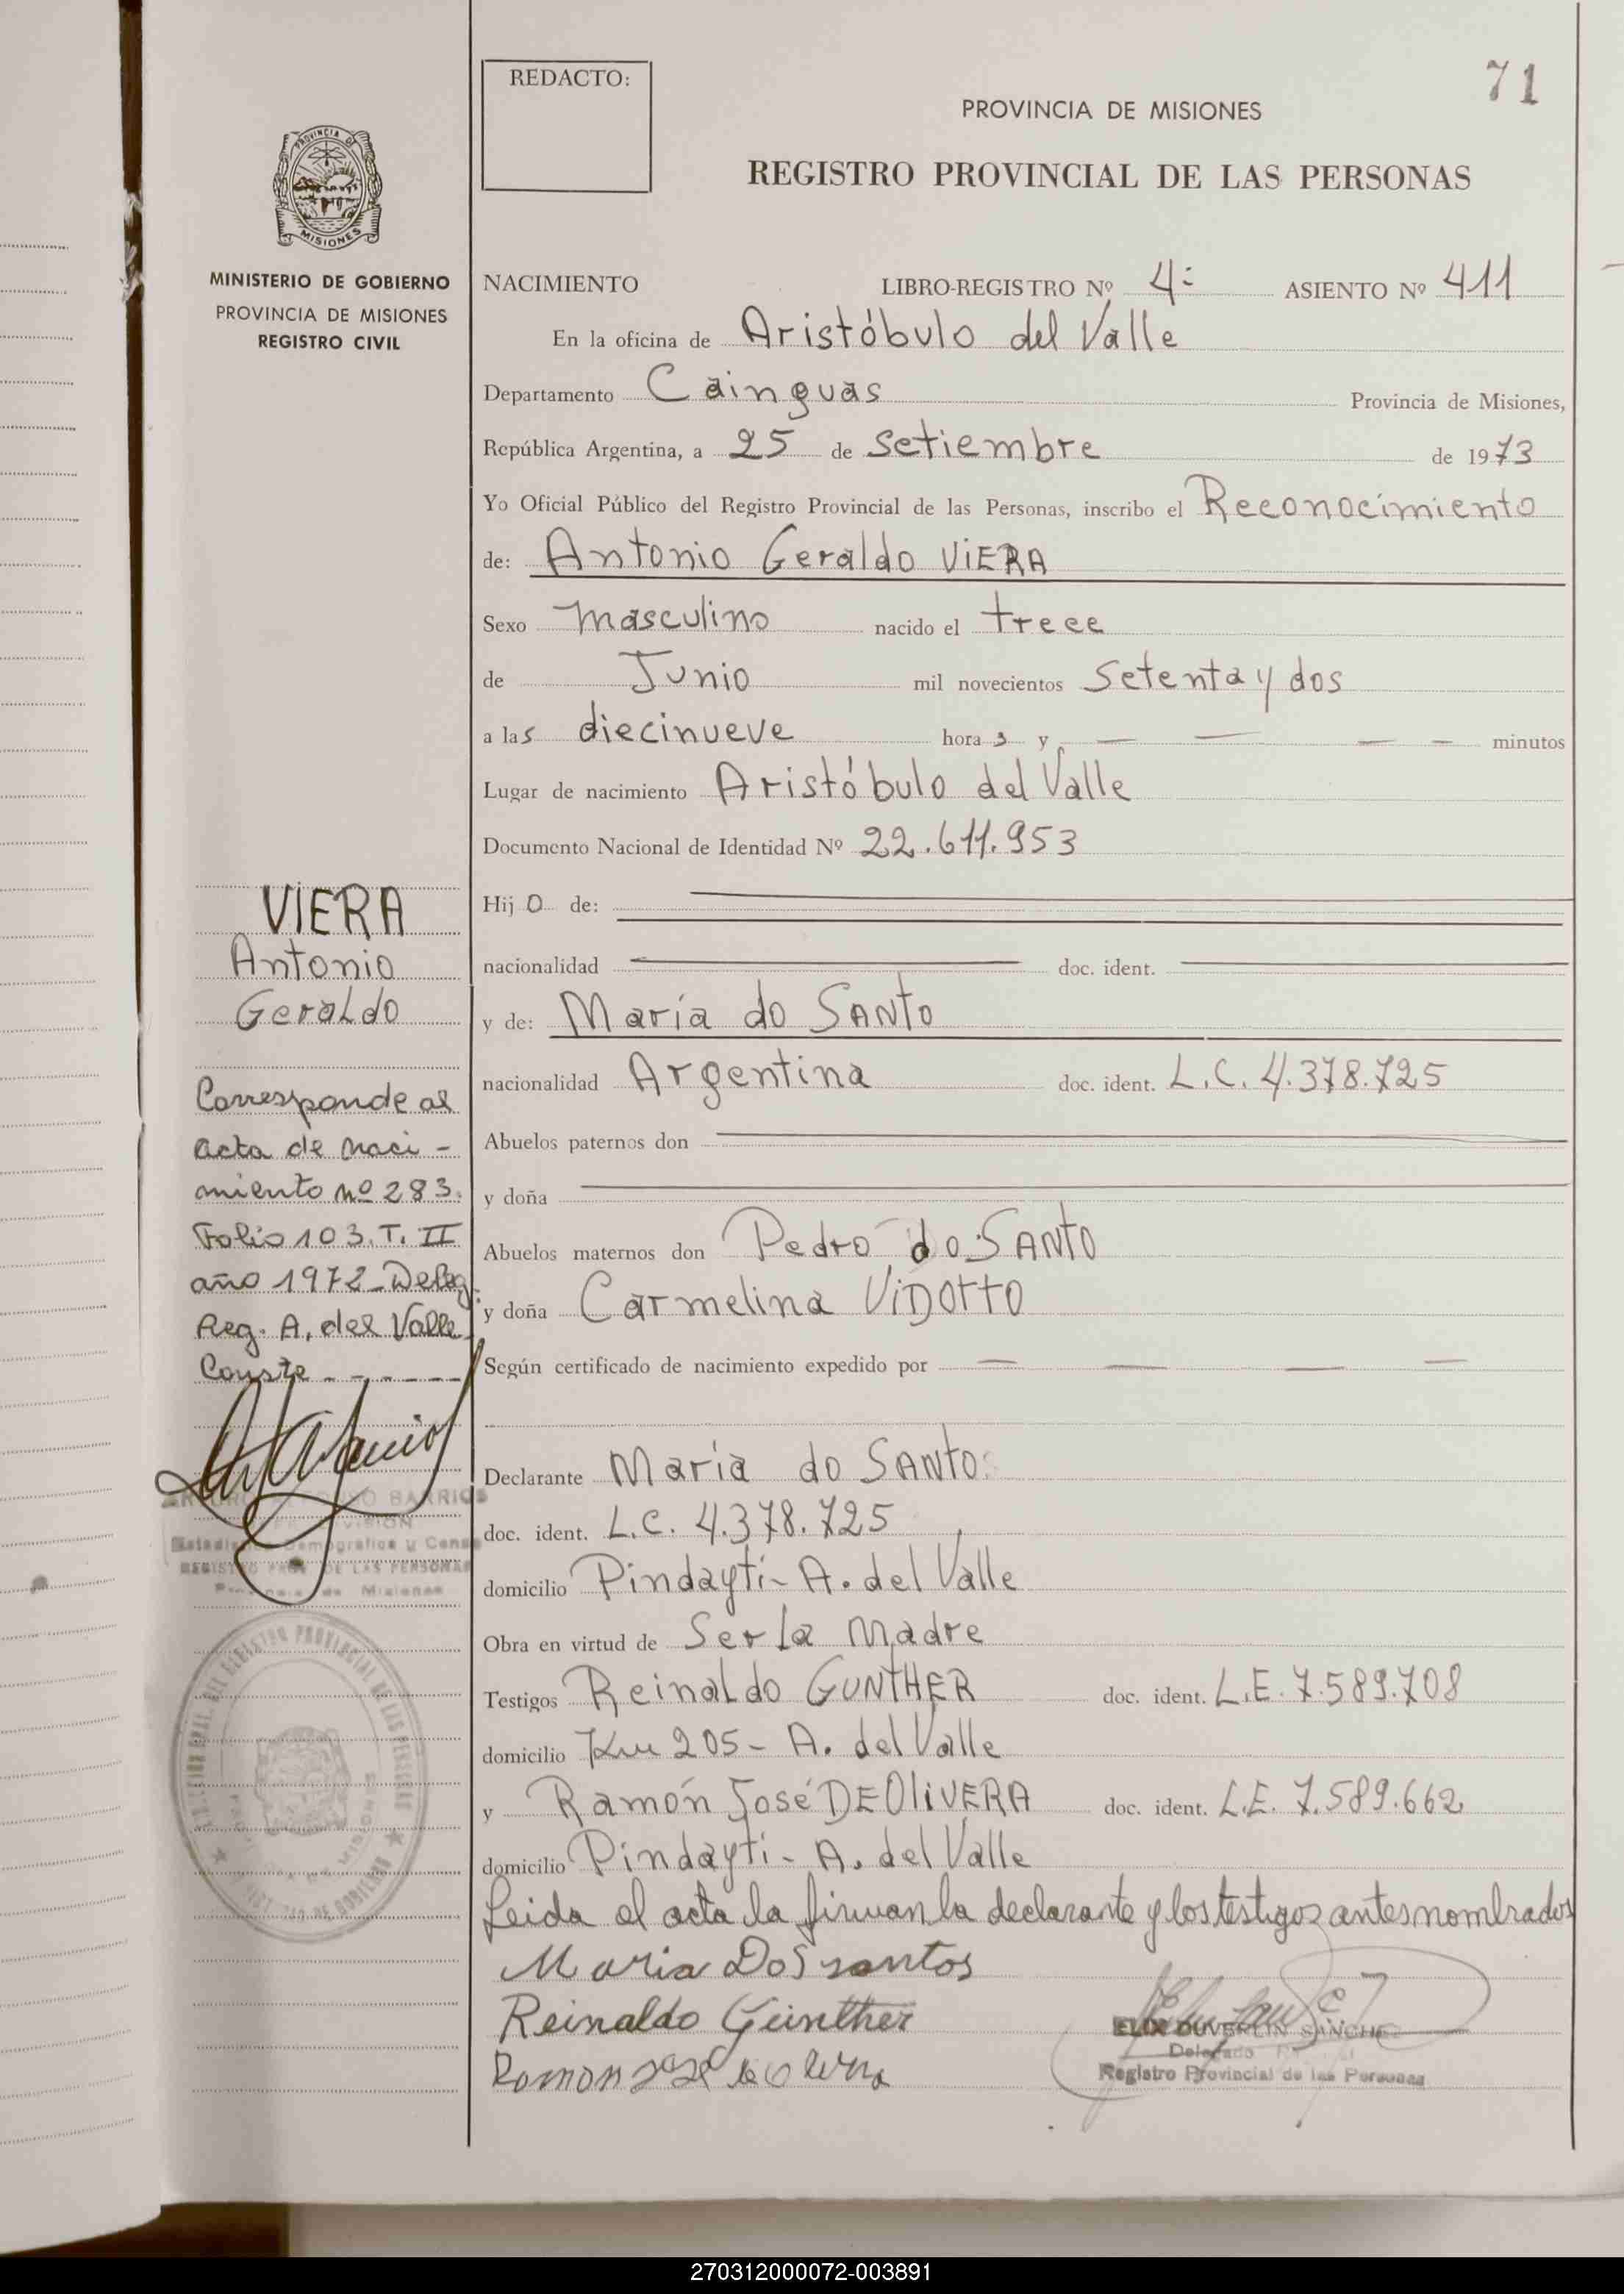 REDACTO:
71
PROVINCIA DE MISIONES
REGISTRO PROVINCIAL DE LAS PERSONAS
PROVINCIA DE
MISIONES
MINISTERIO DE GOBIERNO
PROVINCIA DE MISIONES
REGISTRO CIVIL
NACIMIENTO LIBRO-REGISTRO Nº 4: ASIENTO Nº 411
En la oficina de Aristóbulo del Valle
Departamento Cainguas Provincia de Misiones,
República Argentina, a 25 de Setiembre de 1973
Yo Oficial Público del Registro Provincial de las Personas, inscribo el Reconocimiento
de: Antonio Geraldo VIERA
Sexo Masculino nacido el trece
de Junio mil novecientos Setenta y dos
a las diecinueve hora s y — — — — minutos
Lugar de nacimiento Aristóbulo del Valle
Documento Nacional de Identidad Nº 22.611.953
Hij o de:
nacionalidad doc. ident.
y de: María do SANTO
nacionalidad Argentina doc. ident. L.C. 4.378.725
Abuelos paternos don
y doña
Abuelos maternos don Pedro do SANTO
y doña Carmelina VIDOTTO
Según certificado de nacimiento expedido por — — — —
Declarante María do SANTO
doc. ident. L.C. 4.378.725
domicilio Pindaytí - A. del Valle
Obra en virtud de Ser la Madre
Testigos Reinaldo GUNTHER doc. ident. L.E. 7.589.708
domicilio Km 205 - A. del Valle
y Ramón José DE OLIVERA doc. ident. L.E. 7.589.662
domicilio Pindayti - A. del Valle
Leida el acta la firman la declarante y los testigos antes nombrados
Maria Dos santos
Reinaldo Günther
Ramon José de
ELIX DUVERLIN SANCHE
Delegado
Registro Provincial de las Personas
VIERA
Antonio
Geraldo
Corresponde al
acta de naci-
miento nº 283.
Folio 103. T. II
año 1972 - Deleg.
Reg. A. del Valle
Conste - - - - - -
BARRIOS
DIVISION
Estadistica Demografica y Censo
REGISTRO PROV. DE LAS PERSONAS
Provincia de Misiones
270312000072-003891